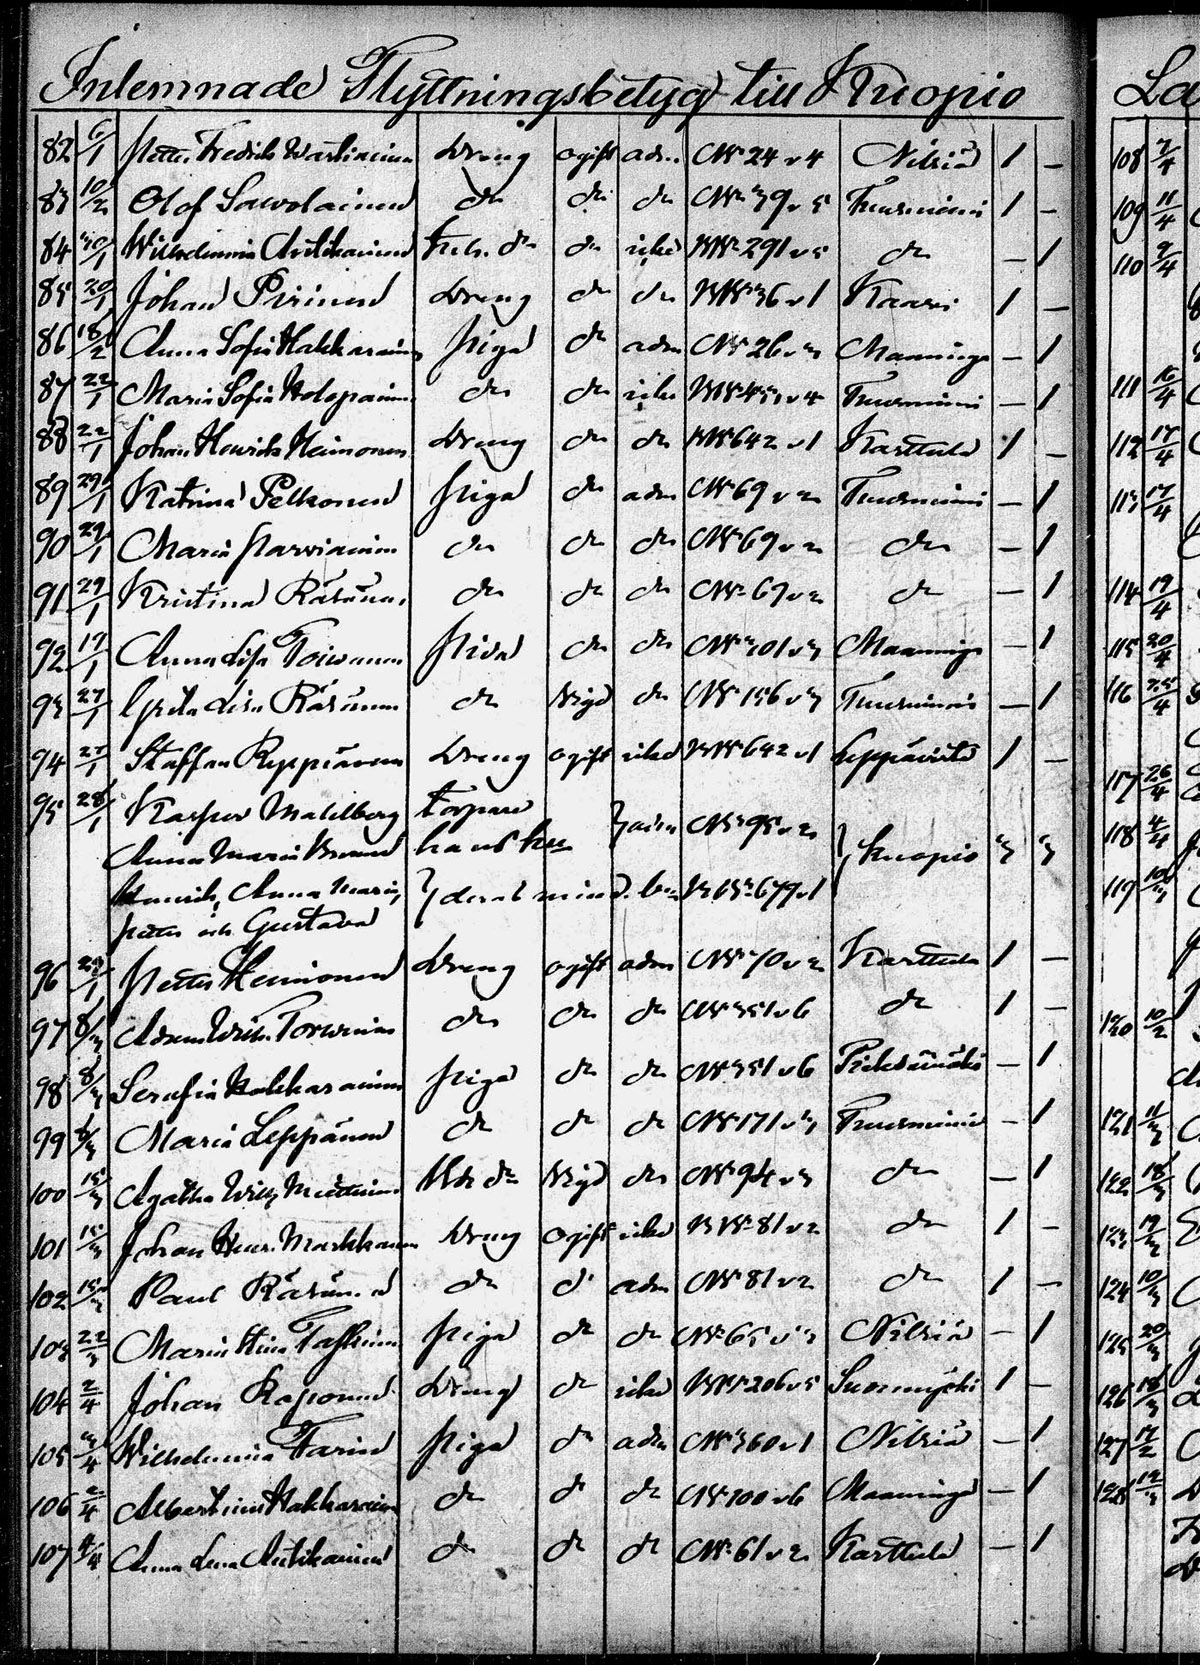 Inlemnade Flyttningsbetyg till Kuopio
82 6/1 Petter Fredrik Wartiainen Dreng ogift adm N 24 v 4 Nilsiä 1 –
83 10/2 Olof Sawolainen do do do N 39 v 5 Tuusniemi 1 –
84 30/1 Wilhelmina Antikainen do do icke 291 v 5 do – 1
85 20/1 Johan Pirinen Dreng do do 36 v 1 Kaavi 1 –
86 18/2 Anna Sofia Hakkarainen Piga do adm N 26 v 3 Maaninga – 1
87 22/1 Maria Sofia Holopainen do do icke v 4 Tuusniemi – 1
88 22/1 Johan Henrik Heimonen Dreng do do 642 v 1 Karttula 1 –
89 29/1 Katrina Pelkonen Piga do adm N 69 v 2 Tuusniemi – 1
90 29/1 Maria Parviainen do do do N 69 v 2 do – 1
91 29/1 Kristina Räsänen do do do N 69 v 2 do – 1
92 17/1 Anna Lisa Toivanen Piga do do N 301 v 3 Maaninga – 1
93 27/1 Greta Lisa Räsänen do do N 156 v 3 Tuusniemi – 1
94 27/1 Staffan Reppänen Dreng ogift icke 642 v 1 Leppävirta 1 –
95 28/1 Kasper Mahlberg Torpare
Anna Maria hans hu } adm N 95 v 2 } Kuopio 3 3
Henrik, Anna Maria, } deras mind. bn 677 v 1
Petter och Gustava
96 29/1 Petter Heimonen Dreng ogift adm N 70 v 2 Karttula 1 –
97 8/3 Adam Wilh. Torvinen do do do N 351 v 6 do 1 –
98 8/3 Serafia Hakkarainen Piga do do N 351 v 6 Pieksämäki – 1
99 Maria Leppänen do do do N 171 v 3 Tuusniemi – 1
100 15/3 Agatha Wilh. do do N 94 v 3 do – 1
101 15/3 Johan Henr. Markkanen Dreng ogift icke 81 v 2 do 1 –
102 15/3 Paul Räsänen do do adm N 81 v 2 do 1 –
103 22/3 Maria Stina Piga do do N 65 v 3 Nilsiä – 1
104 2/4 Johan Kaponen Dreng do icke 206 v 5 Suonenjoki 1 –
105 3/4 Wilhelmina Piga do adm N 360 v 1 Nilsiä – 1
106 2/4 Albertina Hakkarainen do do do N 300 v 6 Maaninga – 1
107 4/4 Anna Lena Antikainen do do do N 61 v 2 Karttula – 1
La
108 7/4
109 11/4
110 9/4
111 16/4
112 17/4
113 17/4
114 19/4
115 20/4
116 25/4
117 26/4
118 4/4
119 10/3
120 10/2
121 11/3
122 18/3
123 19/3
124 10/3
125 20/3
126 18/3
127 12/2
128 12/3